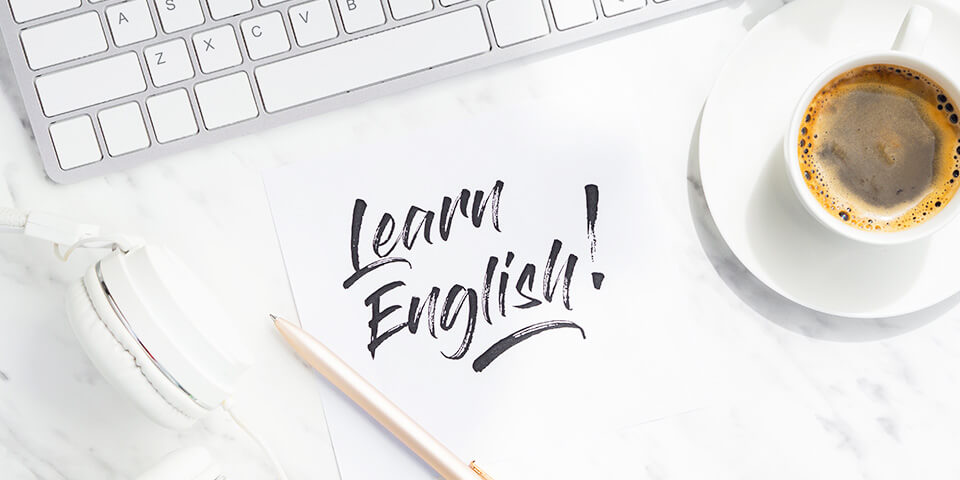 A S
Z X C V B
Learn
English!